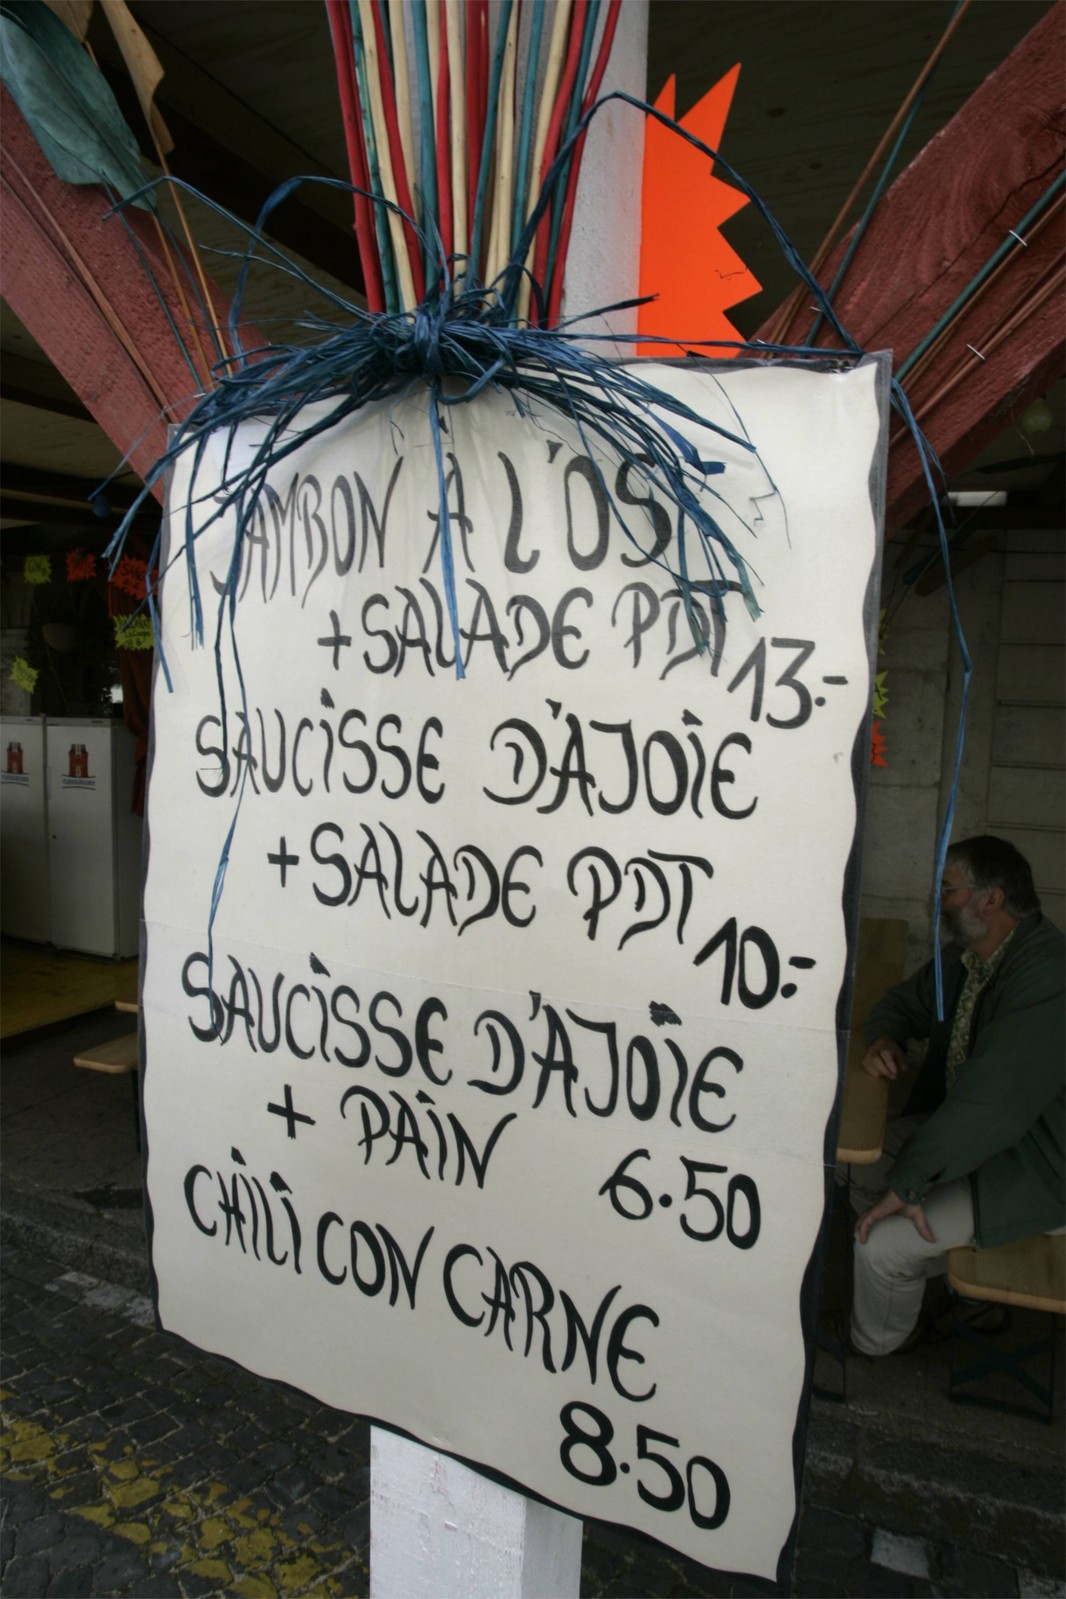 JAMBON À L'OS
+ SALADE PDT
13.-
SAUCISSE D'AJOIE
+ SALADE PDT
10.-
SAUCISSE D'AJOIE
+ PAIN 6.50
CHILI CON CARNE
8.50